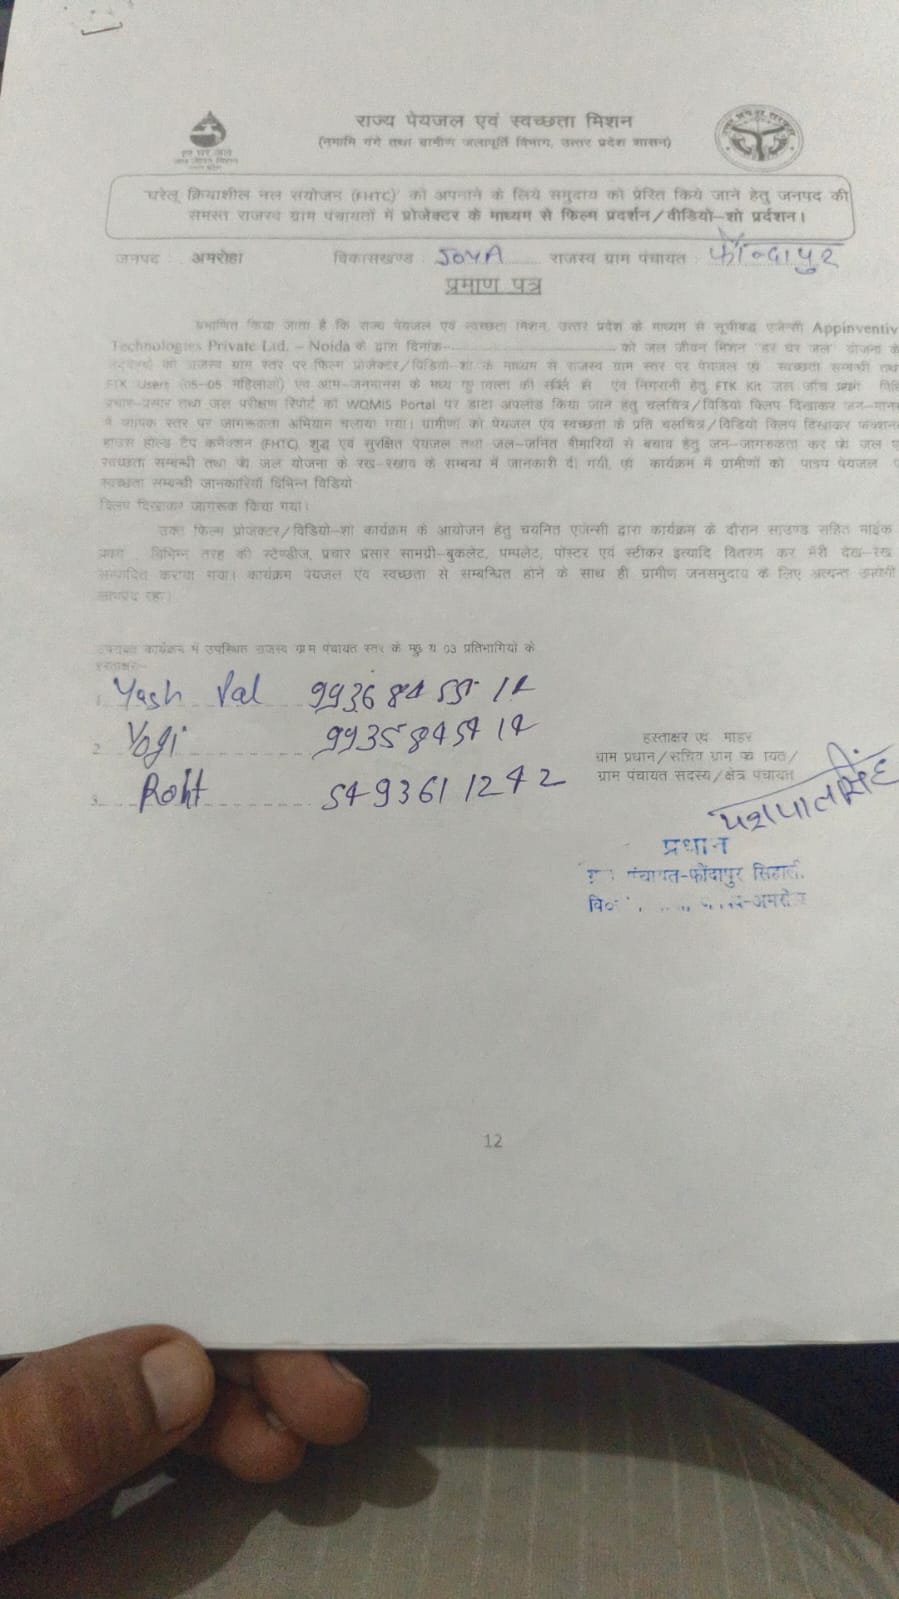 राज्य पेयजल एवं स्वच्छता मिशन
(नमामि गंगे तथा ग्रामीण जलापूर्ति विभाग, उत्तर प्रदेश शासन)
'घरेलू क्रियाशील नल संयोजन (FHTC)' को अपनाने के लिये समुदाय को प्रेरित किये जाने हेतु जनपद की
समस्त राजस्व ग्राम पंचायतों में प्रोजेक्टर के माध्यम से फिल्म प्रदर्शन/वीडियो-शो प्रर्दशन।
जनपद : अमरोहा विकासखण्ड : JOYA राजस्व ग्राम पंचायत : फौन्दापुर
प्रमाण पत्र
प्रमाणित किया जाता है कि राज्य पेयजल एवं स्वच्छता मिशन, उत्तर प्रदेश के माध्यम से सूचीबद्ध एजेन्सी Appinventiv
Technologies Private Ltd. – Noida के द्वारा दिनांक- को जल जीवन मिशन "हर घर जल" योजना के
को राजस्व ग्राम स्तर पर फिल्म प्रोजेक्टर/विडियो-शो के माध्यम से राजस्व ग्राम स्तर पर पेयजल एवं स्वच्छता सम्बन्धी तथा
FTK Users (05-05 महिलाओं) एवं आम-जनमानस के मध्य एवं निगरानी हेतु FTK Kit जल जाँच
प्रचार-प्रसार तथा जल परीक्षण रिपोर्ट को WQMIS Portal पर डाटा अपलोड किया जाने हेतु चलचित्र/विडियो क्लिप दिखाकर जन-मानस
में व्यापक स्तर पर जागरूकता अभियान चलाया गया। ग्रामीणों को पेयजल एवं स्वच्छता के प्रति चलचित्र/विडियो क्लिप दिखाकर
हाउस होल्ड टैप कनेक्शन (FHTC), शुद्ध एवं सुरक्षित पेयजल तथा जल-जनित बीमारियों से बचाव हेतु जन-जागरूकता कर जल
स्वच्छता सम्बन्धी तथा जल योजना के रख-रखाव के सम्बन्ध में जानकारी दी गयी, कार्यक्रम में ग्रामीणों को पेयजल
स्वच्छता सम्बन्धी जानकारियाँ विभिन्न विडियो
क्लिप दिखाकर जागरूक किया गया।
उक्त फिल्म प्रोजेक्टर/विडियो-शो कार्यक्रम के आयोजन हेतु चयनित एजेन्सी द्वारा कार्यक्रम के दौरान साउण्ड सहित माईक
विभिन्न तरह की स्टेण्डीज, प्रचार प्रसार सामग्री-बुकलेट, पम्पलेट, पोस्टर एवं स्टीकर इत्यादि वितरण कर मेरी देख-रेख
सम्पादित कराया गया। कार्यक्रम पेयजल एवं स्वच्छता से सम्बन्धित होने के साथ ही ग्रामीण जनसमुदाय के लिए अत्यन्त उपयोगी
लाभप्रद रहा।
कार्यक्रम में उपस्थित राजस्व ग्राम पंचायत स्तर के 03 प्रतिभागियों के
हस्ताक्षर:-
Yash Pal
2. Yogi
3. Rohit 549361 1242
हस्ताक्षर एवं मोहर
ग्राम प्रधान/सचिव ग्राम पंचायत/
ग्राम पंचायत सदस्य/क्षेत्र पंचायत
यशपाल सिंह
प्रधान
पंचायत-फौंदापुर
वि०
12